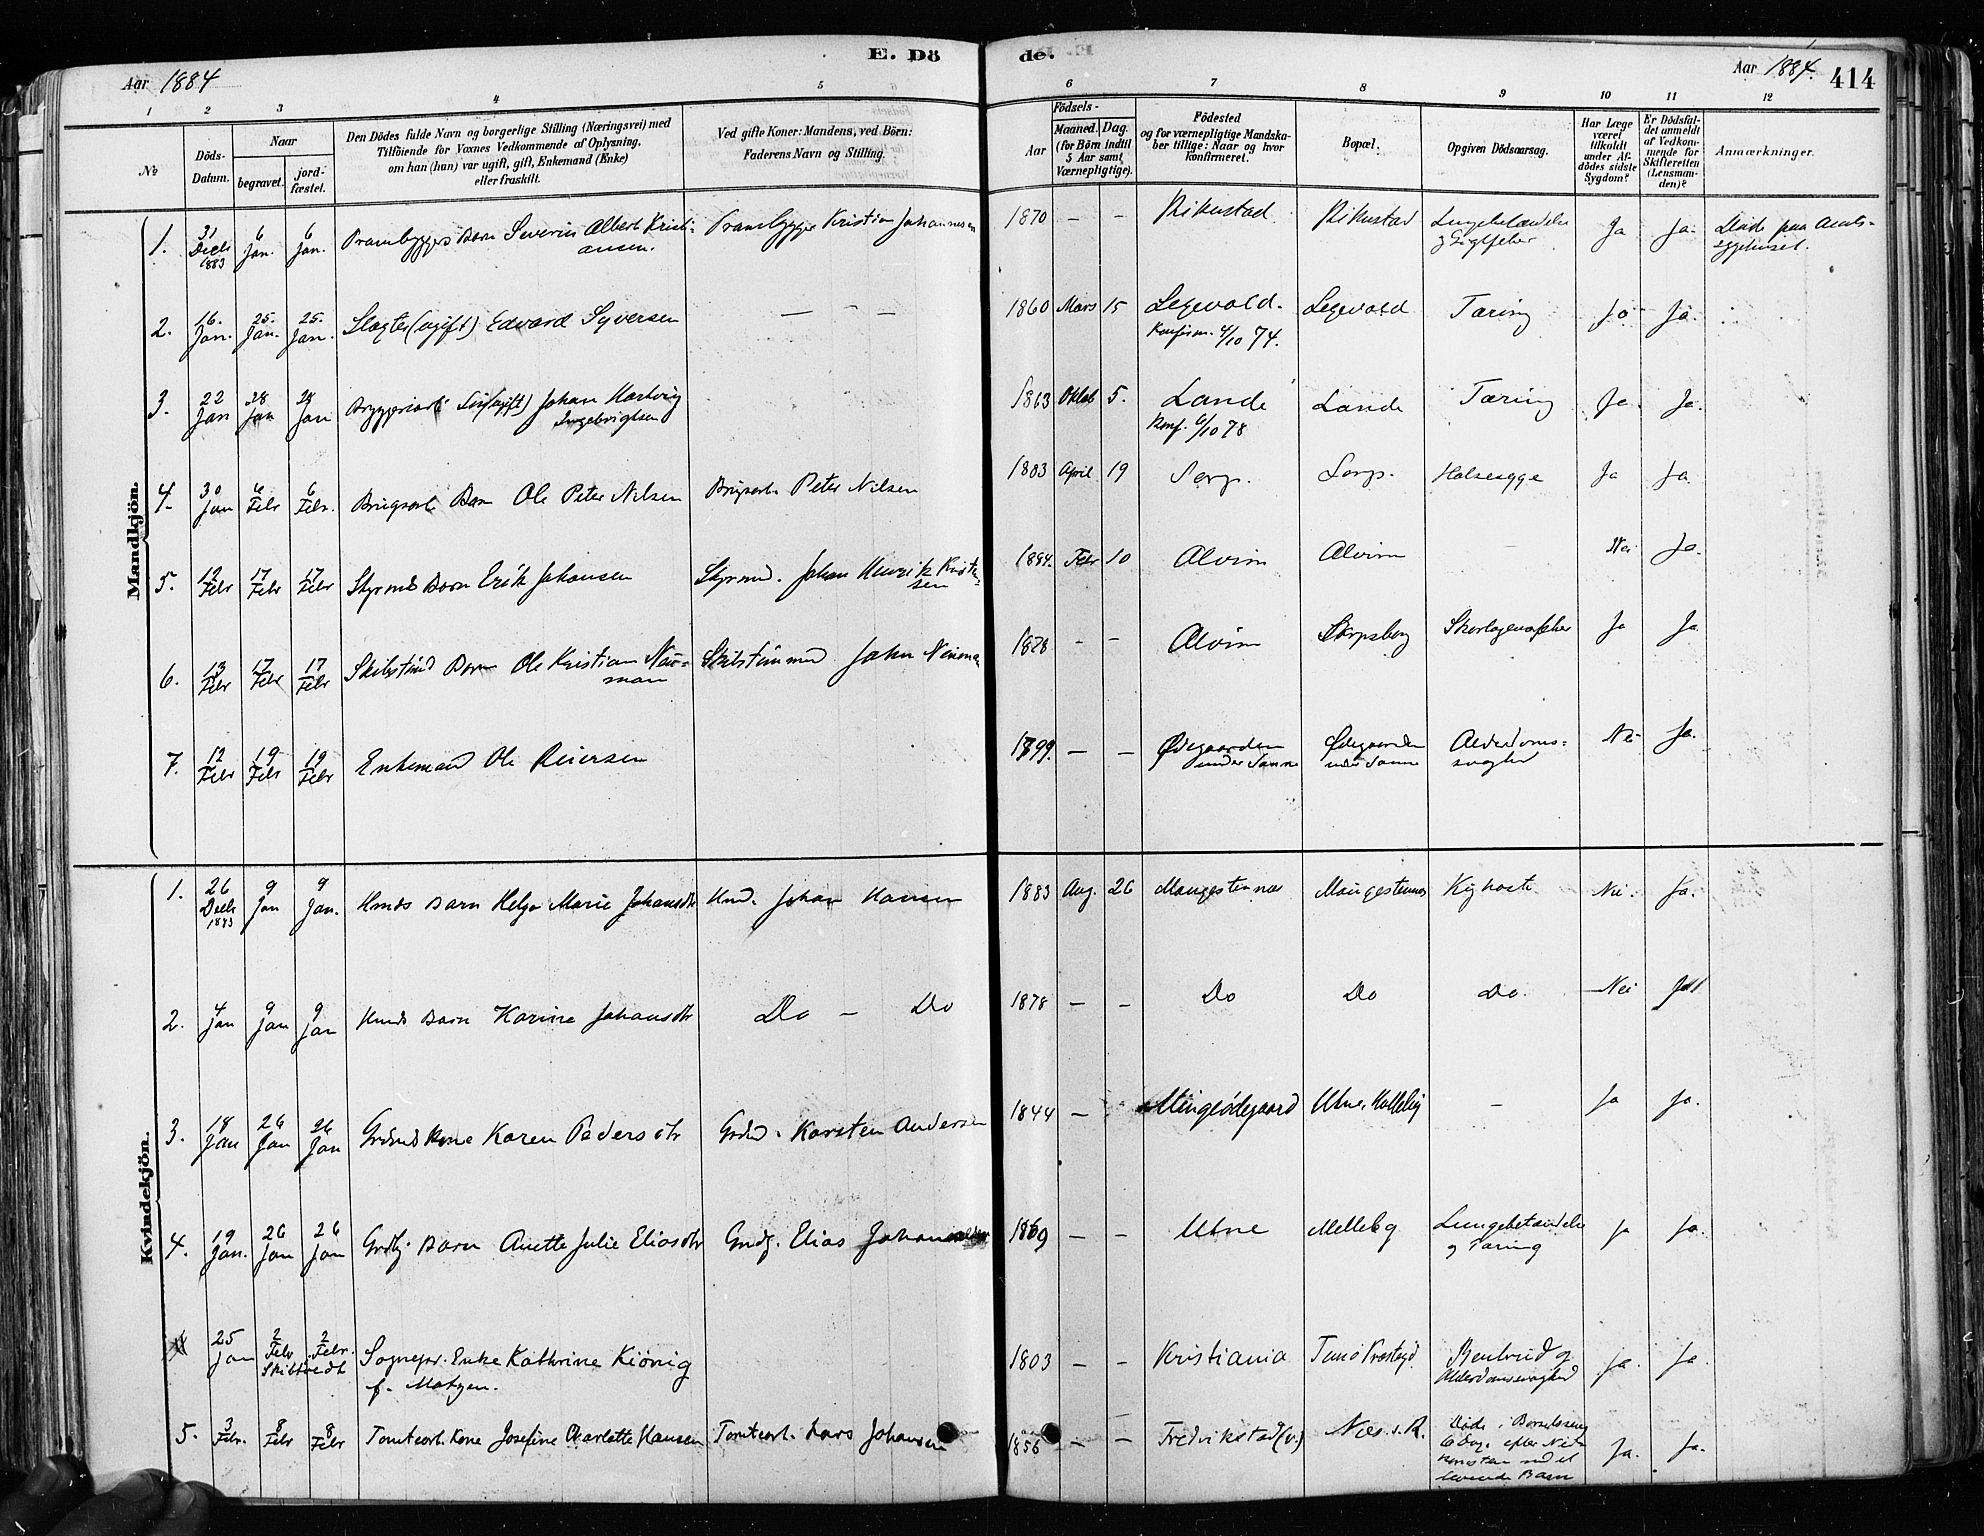 E. Dö de.
Aar 1884
Aar 1884.
414
1 2 3 4 5 6 7 8 9 10 11 12
№
Döds-Datum.
Naar
begravet.
jord-fæstet.
Den Dödes fulde Navn og borgerlige Stilling (Næringsvei) med
Tilföiende for Voxnes Vedkommende af Oplysning,
om han (hun) var ugift, gift, Enkemand (Enke)
eller fraskilt.
Ved gifte Koner: Mandens, ved Börn:
Faderens Navn og Stilling.
Födsels-
Aar
Maaned. Dag.
(for Börn indtil
5 Aar samt
Værnepligtige).
Födested
og for værnepligtige Mandska-
ber tillige: Naar og hvor
konfirmeret.
Bopæl.
Opgiven Dödsaarsag.
Har Læge
været
tilkaldt
under Af-
dödes sidste
Sygdom?
Er Dödsfal-
det anmeldt
af Vedkom-
mende for
Skifteretten
(Lensman-
den)?
Anmærkninger.
Mandkjön.
1. 31 Decb 1883 6 Jan. 6 Jan. Prambyggers Barn Severin Albert Kristi-
ansen. Prambygger Kristian Johannesen 1870 — — Rikustad Rikustad Lungebetændelse
og Ja Ja. Döde paa Amts-
sygehuset.
2. 16. Jan. 25. Jan. 25. Jan. Slagter (ugift) Edvard Syversen — — — 1860 Mars 15 Legevold.
Konfirm. 4/10 74. Legevold Tæring Ja Ja.
3. 22 Jan 28 Jan 28 Jan Bryggeriarb. (ugift) Johan Hartvig
Ingebrigtsen 1863 Oktob 5. Lande
Konf. 6/10 78 Lande Tæring Ja Ja.
4. 30 Jan 6 Febr 6 Febr. Brugsarb. Barn Ole Peter Nilsen Brugsarb. Peter Nilsen 1883 April 19 Sorp. Sorp. Halsesyge Ja Ja.
5. 12 Febr 17 Febr 17 Febr Styrmds Barn Erik Johansen Styrmd. Johan Henrik Kristen-
sen 1884. Febr 10 Alvim Alvim — Nei Ja.
6. 13 Febr 17 Febr 17 Febr Skibstømd Barn Ole Kristian
man Skibstømmmd John 1878 — — Alvim Skarlagensfeber Ja Ja.
7. 12 Febr 19 Febr 19 Febr Enkemand Ole Reiersen 1799. — — Ødegaarden
under Tune Ødegaarden
under Tune Alderdoms-
svaghed Nei Ja.
Kvindekjön.
1. 26 Decb 1883 9 Jan 9 Jan. Hmds Barn Helga Marie Johansdtr Hmd. Johan Hansen 1883 Aug. 26 Maugestennæs Maugestennæs Kighoste Nei. Ja.
2. 4 Jan 9 Jan 9 Jan Hmds Barn Karine Johansdtr Do — Do 1878 — — Do Do Do. Nei Ja
3. 18 Jan 26 Jan 26 Jan Grdmds Kone Karen Pedersdtr Grdmd. Karsten Andersen 1844 — Mingeødegaard Utne, Kalleby — Ja Ja.
4. 19 Jan. 26 Jan 26 Jan Grdbr. Barn Anette Julie Eliasdtr Grdbr. Elias Johannesen 1869 — — Utne Melleby Lungebetændelse
og Tæring Ja Ja.
25 Jan 2 Febr 2 Febr.
Skibtvedt Sognepr. Enke Kathrine Kiönig
f. Matzen. 1803 — — Kristiania Tune Præstegd Benbrud og
Alderdomssvaghed Ja. Ja.
5. 3 Febr. 8 Febr 8 Febr Tomtearb. Kone Josefine Charlotte Hansen Tomtearb. Lars Johansen 1856 — — Fredrikstad (v.) Næs Döde i Barselseng
6 Dage efter Ned-
komsten med et
levende Barn Ja. Ja.